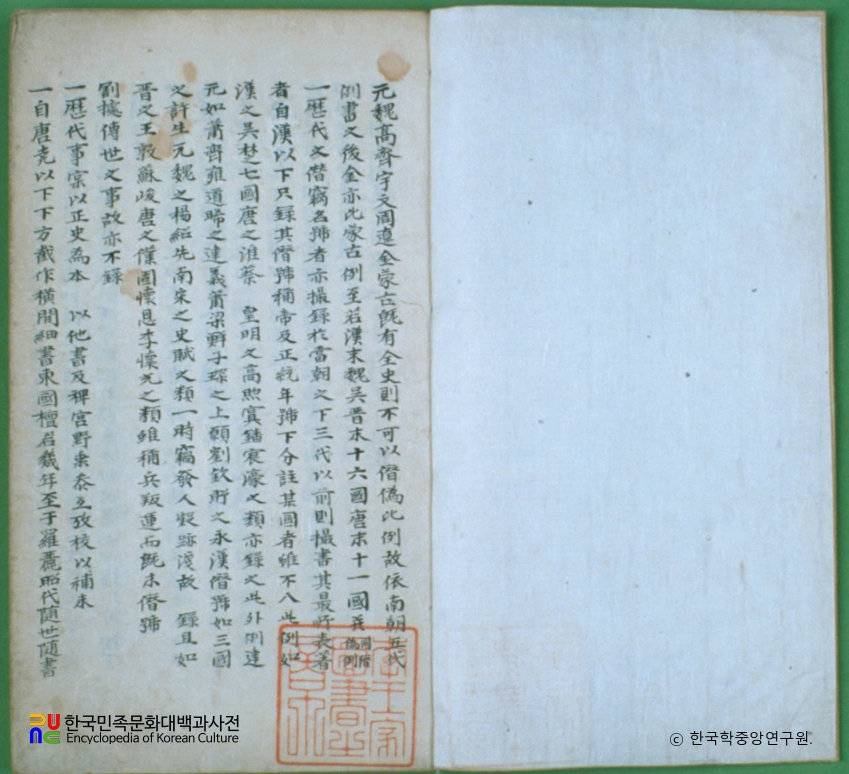 元魏高齊宇文周遼金蒙古旣有全史則不可以僭僞比例故依南朝五代
例書之後金亦比蒙古例至若漢末魏吳晋末十六國唐末十一國 同僭僞例
一歷代之僭竊名號者亦撮錄於當朝之下三代以前則撮書其最 表著
者自漢以下只錄其僭號稱帝及正統年號下分註某國者雖不入此例如
漢之吳楚七國唐之淮蔡 皇明之高煦寘鐇宸濠之類亦錄之此外例建
元如蕭齊雍道晞之建義蕭梁鮮于琛之上願劉欽 之永漢僭號如三國
之許生元魏之楊紹先南宋之史賦之類一時竊發人 跡淺故 錄且如
晋之王敦蘇峻唐之僕固懷恩李懷光之類雖稱兵叛 而旣未僭號
劉 傳世之事故亦不錄
一歷代事實以正史爲本 以他書及稗官野乘叅互攷校以補未
一自唐堯以下下方截作橫間細書東國檀君幾年至于羅麗昭代隨世隨書
한국민족문화대백과사전
Encyclopedia of Korean Culture
ⓒ 한국학중앙연구원.